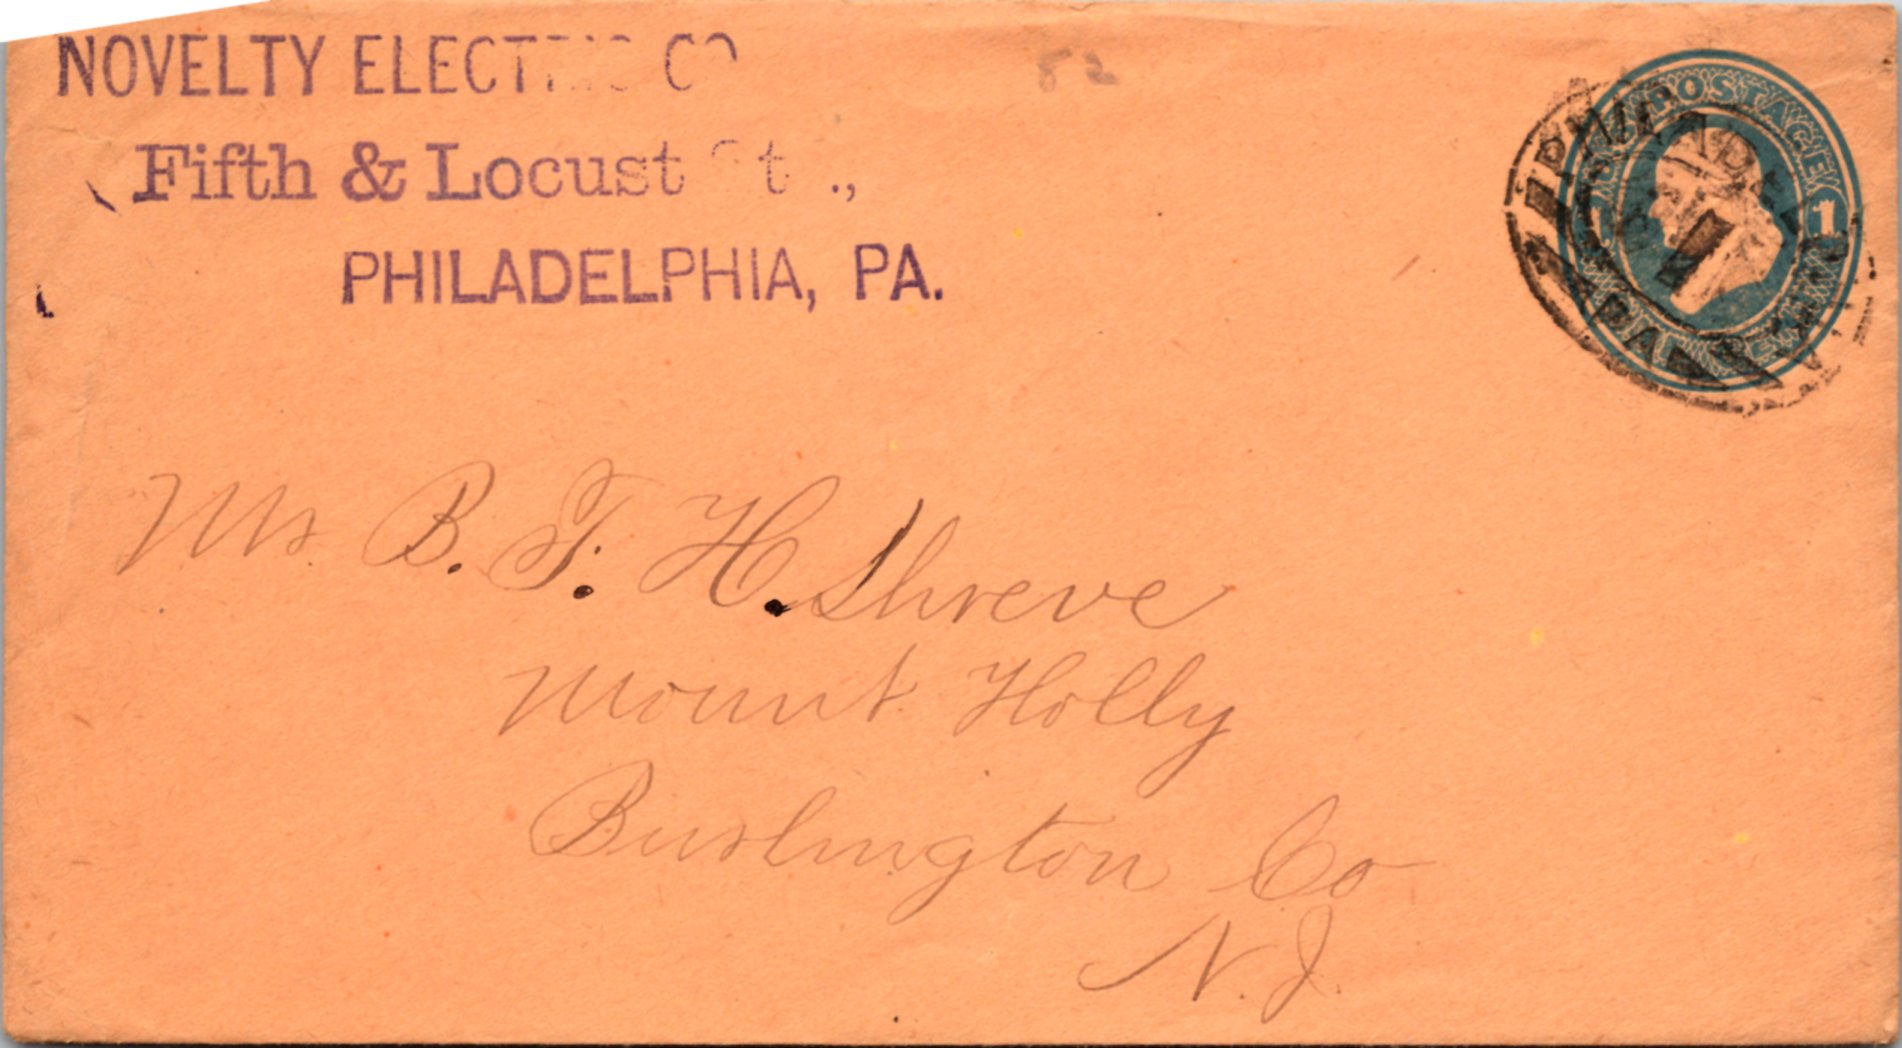 NOVELTY ELECTRIC CO
Fifth & Locust St.,
PHILADELPHIA, PA.
52
U.S. POSTAGE
1
PHILADELPHIA
PA.
Mr B. F. H. Shreve
Mount Holly
Burlington Co
N.J.